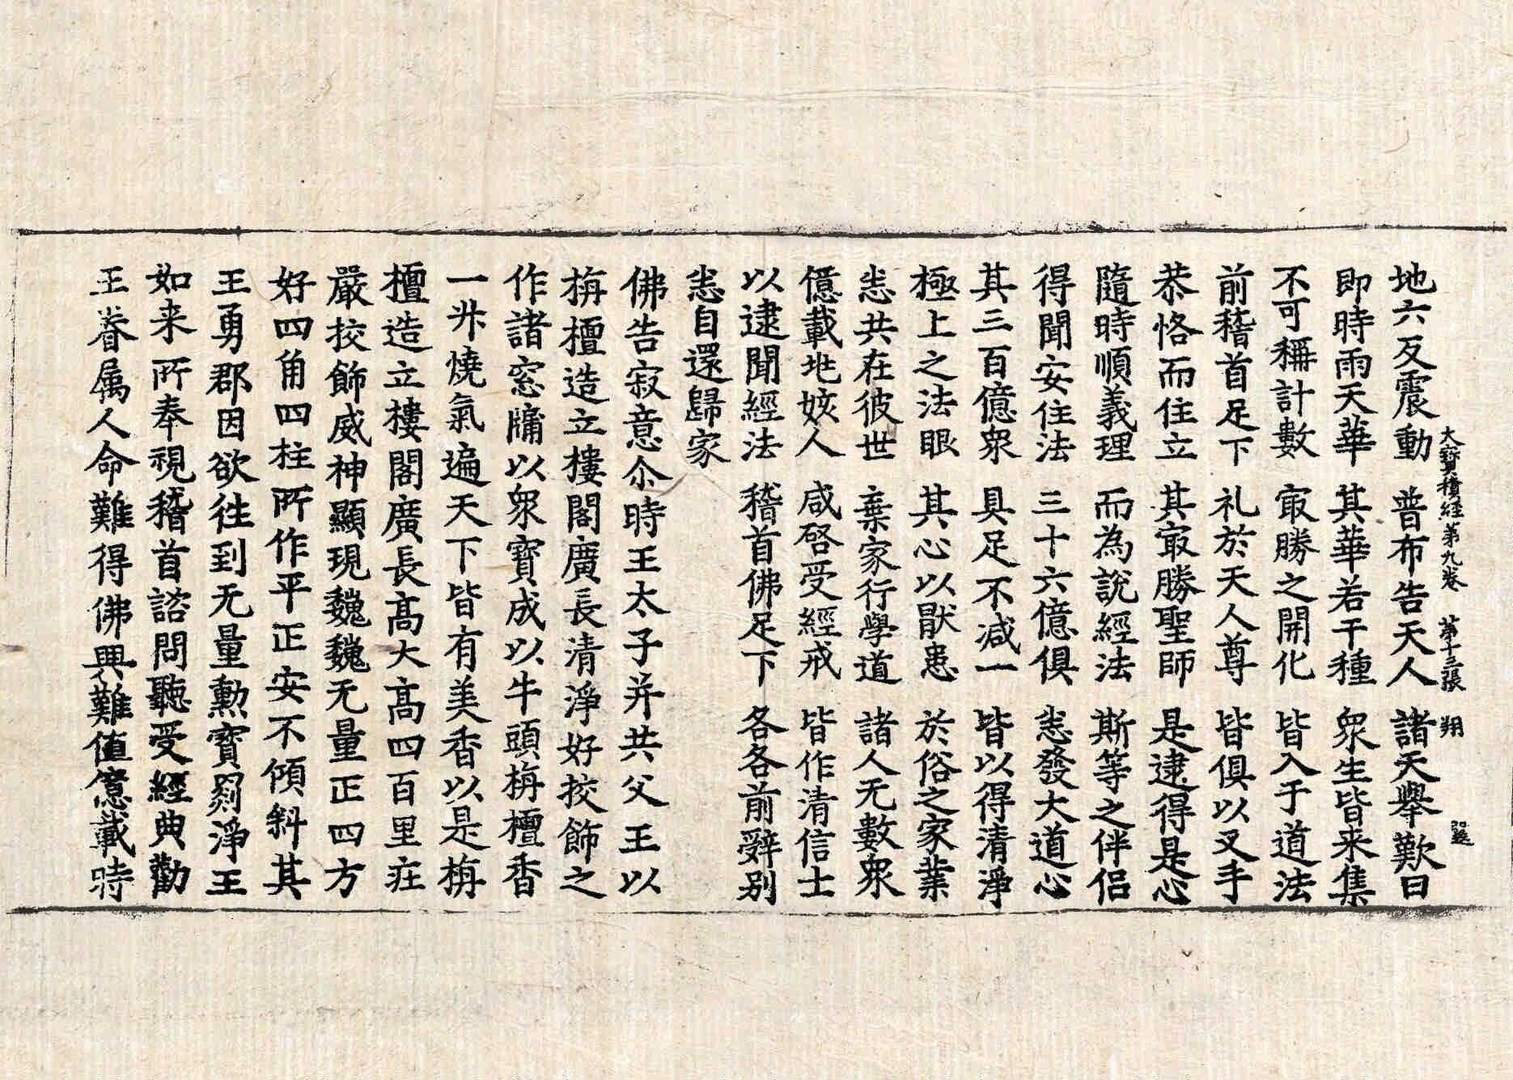 大寶積經第九卷 第十三張 翔
地六反震動 普布告天人 諸天舉歎曰
即時雨天華 其華若干種 衆生皆来集
不可稱計數 㝡勝之開化 皆入于道法
前稽首足下 礼於天人尊 皆俱以叉手
恭恪而住立 其㝡勝聖師 是逮得是心
隨時順義理 而為說經法 斯等之伴侣
得聞安住法 三十六億俱 恙發大道心
其三百億衆 具足不減一 皆以得清淨
極上之法眼 其心以猒患 於俗之家業
恙共在彼世 棄家行學道 諸人无數衆
億載姟人 咸啓受經戒 皆作清信士
以逮聞經法 稽首佛足下 各各前辤別
恙自還歸家
佛告寂意尒時王太子并共父王以
栴檀造立樓閣廣長清淨好挍飾之
作諸窓牗以衆寶成以牛頭栴檀香
一𠦜燒氣遍天下皆有美香以是栴
檀造立樓閣廣長髙大髙四百里莊
嚴挍飾威神顯現魏魏无量正四方
好四角四柱所作平正安不傾斜其
王勇郡因欲往到无量勳寶錦淨王
如来所奉視稽首諮問聽受經典勸
王眷属人命難得佛興難值億載時